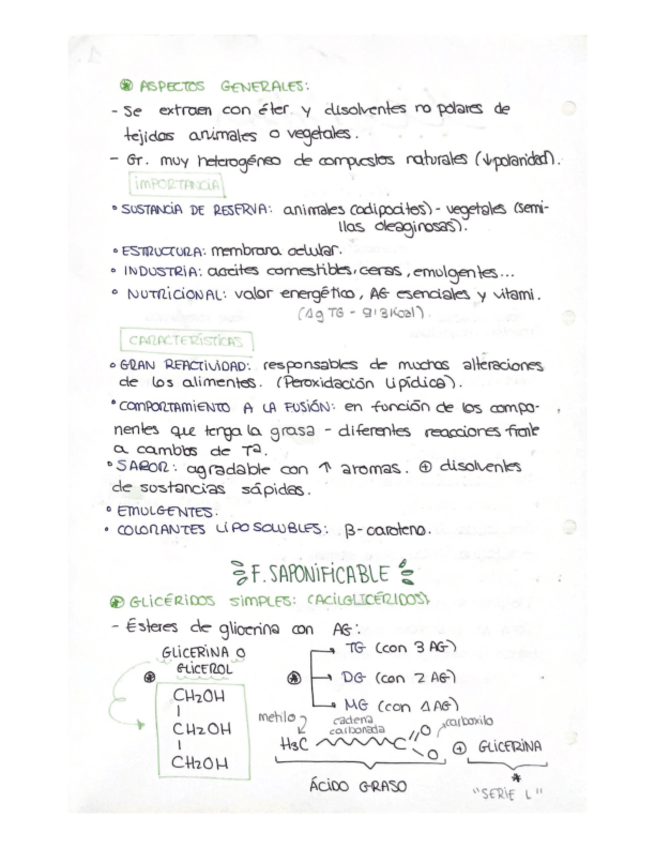 ⊛ ASPECTOS GENERALES:
- Se extraen con éter y disolventes no polares de
tejidos animales o vegetales.
- Gr. muy heterogéneo de compuestos naturales (↓polaridad).
IMPORTANCIA
• SUSTANCIA DE RESERVA: animales (adipocitos) - vegetales (semi-
llas oleaginosas).
• ESTRUCTURA: membrana celular.
• INDUSTRIA: aceites comestibles, ceras, emulgentes...
• NUTRICIONAL: valor energético, AG esenciales y vitami.
(1g TG - 9'3 Kcal).
CARACTERÍSTICAS
• GRAN REACTIVIDAD: responsables de muchas alteraciones
de los alimentos. (Peroxidación Lipídica).
• COMPORTAMIENTO A LA FUSIÓN: en función de los compo-
nentes que tenga la grasa - diferentes reacciones frente
a cambios de Tª.
• SABOR: agradable con ↑ aromas. ⊕ disolventes
de sustancias sápidas.
• EMULGENTES.
• COLORANTES LIPOSOLUBLES: β-caroteno.
F. SAPONIFICABLE
⊛ GLICÉRIDOS SIMPLES: (ACILGLICÉRIDOS)
- Ésteres de glicerina con AG:
GLICERINA O
GLICEROL
CH2OH
CH2OH
CH2OH
TG (con 3 AG)
DG (con 2 AG)
MG (con 1 AG)
metilo
cadena
carbonada
carboxilo
H3C C O O ⊕ GLICERINA
ÁCIDO GRASO
* "SERIE L"